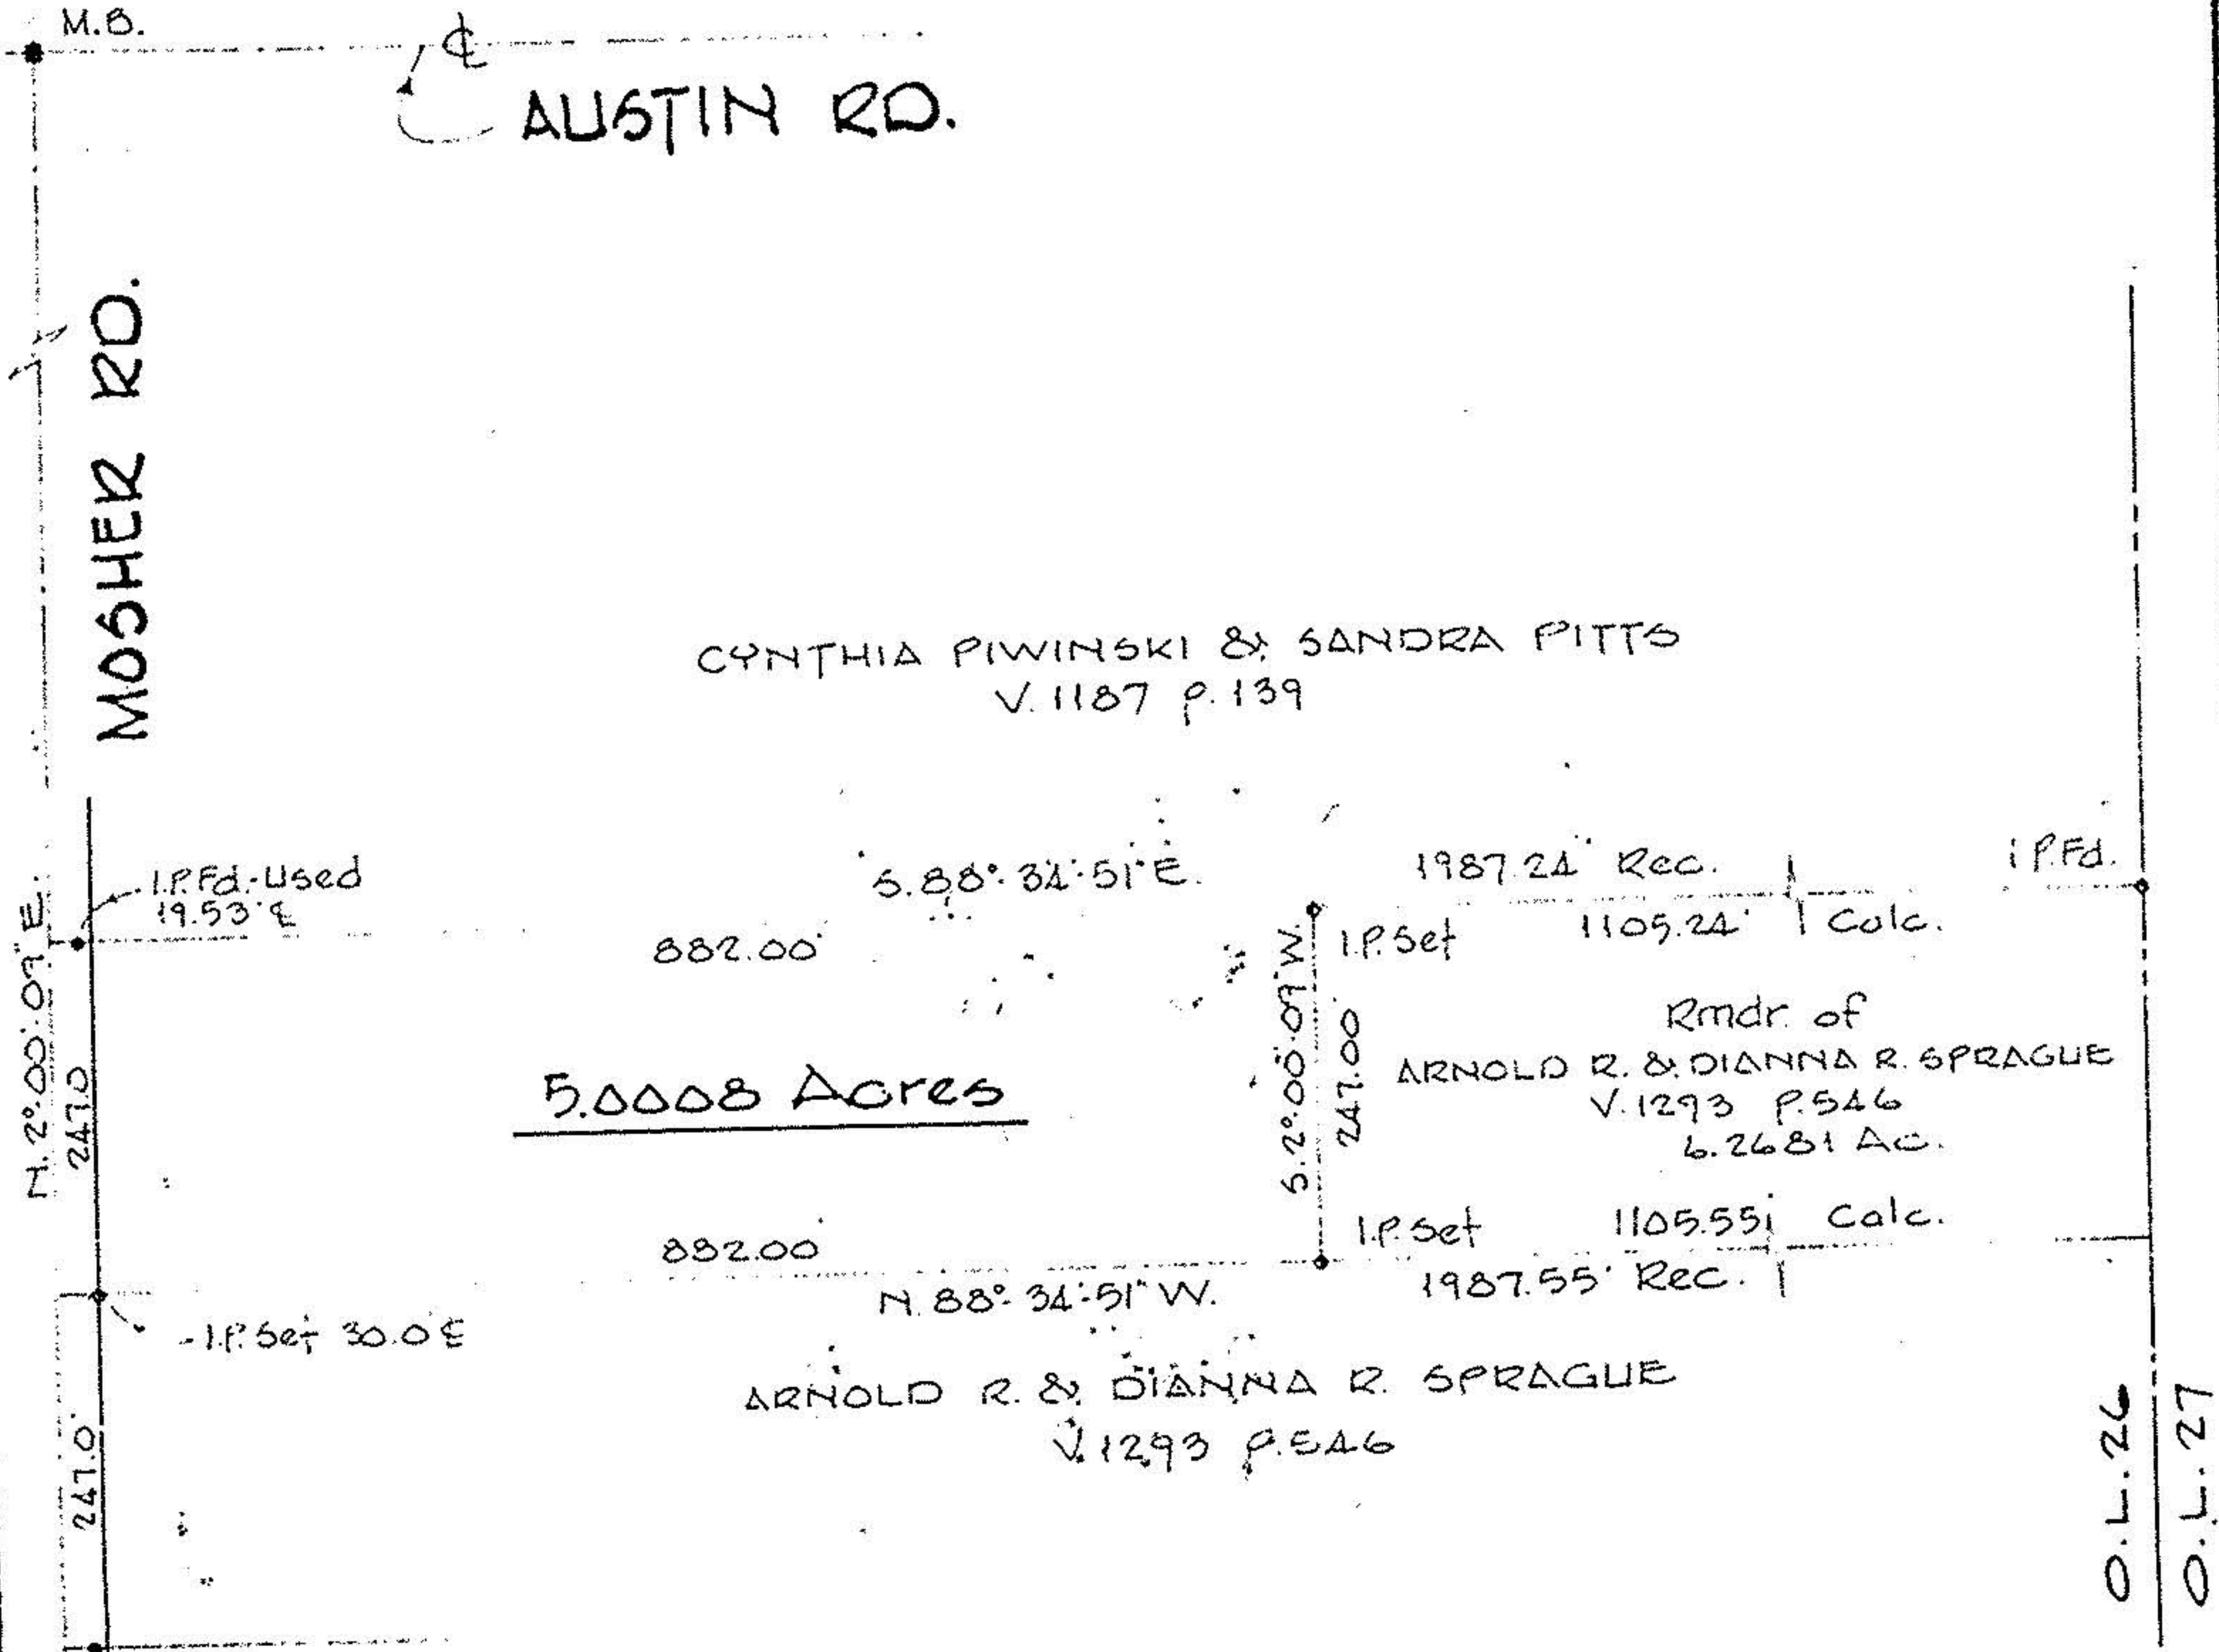 M.B.
℄
AUSTIN RD.
MOSHER RD.
CYNTHIA PIWINSKI & SANDRA PITTS
V. 1187 P. 139
I.P. Fd.-Used
19.53' ℄
S. 88°-34'-51" E.
1987.24' Rec.
I.P. Fd.
882.00'
I.P. Set
1105.24' Calc.
N. 2°-00'-07" E.
247.0
S. 2°-00'-07" W.
247.00'
5.0008 Acres
Rmdr. of
ARNOLD R. & DIANNA R. SPRAGUE
V. 1293 P. 546
6.2681 Ac.
882.00'
I.P. Set
1105.55' Calc.
N. 88°-34'-51" W.
1987.55' Rec.
I.P. Set 30.0' ℄
ARNOLD R. & DIANNA R. SPRAGUE
V. 1293 P. 546
247.0'
O.L. 26
O.L. 27